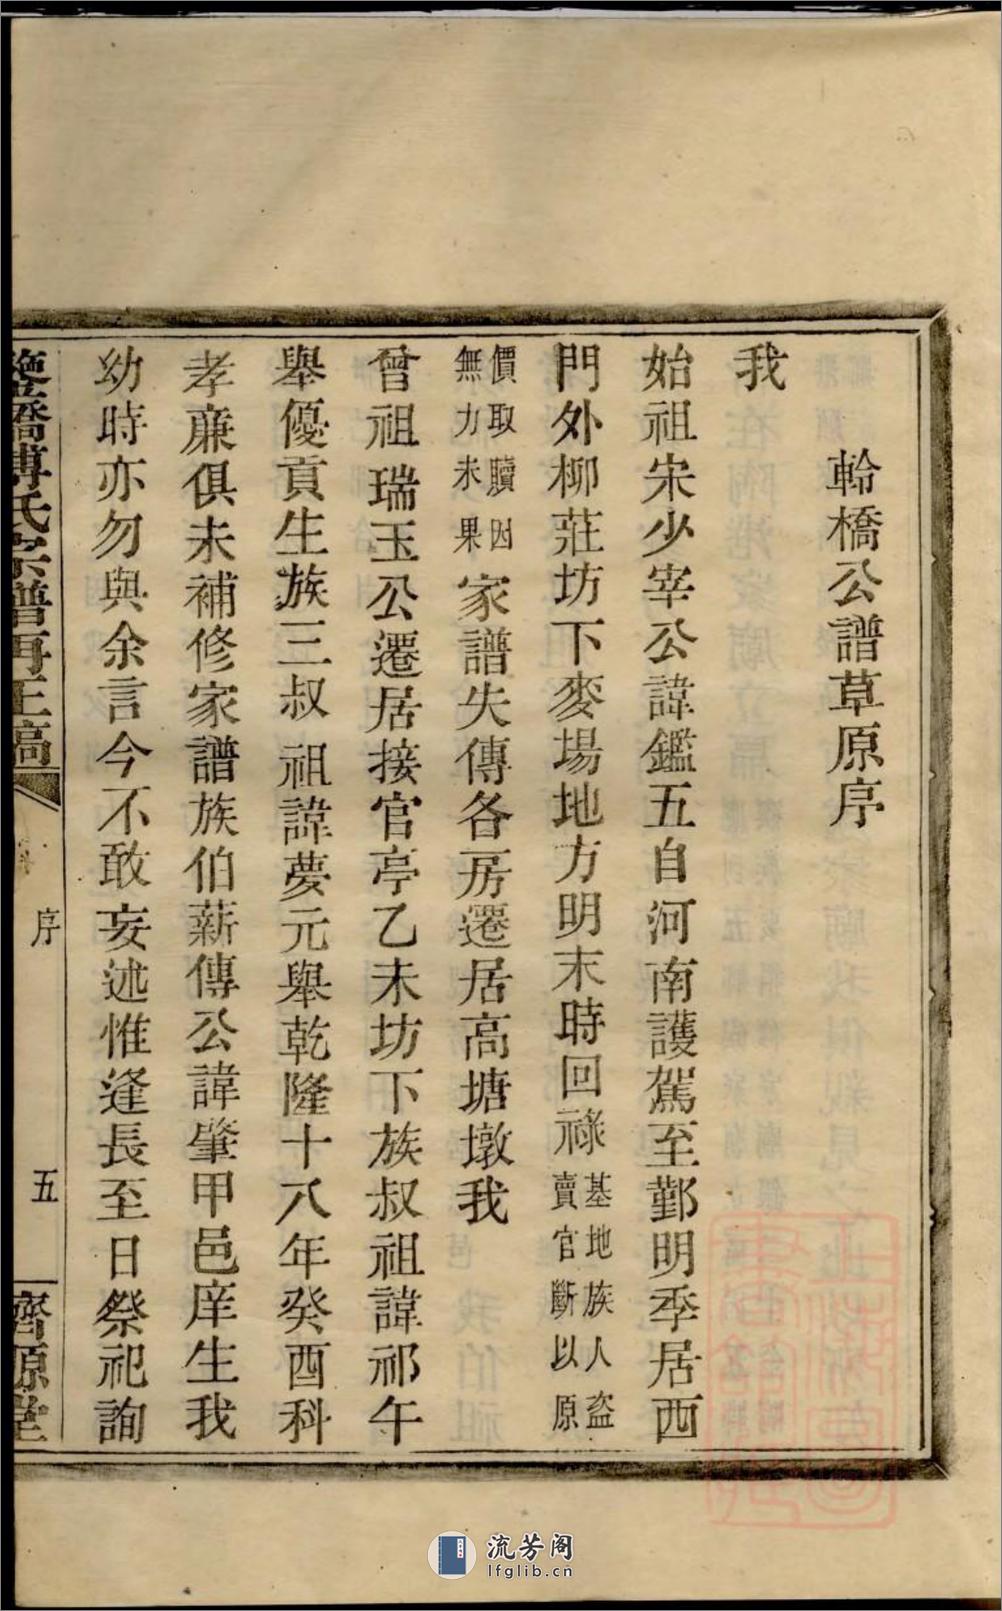 軨橋公譜草原序
我
始祖宋少宰公諱鑑五自河南護駕至鄞明季居西
門外柳莊坊下麥場地方明末時回祿基地族人盜賣官斷以原
價取贖因無力未果家譜失傳各房遷居高塘墩我
曾祖瑞玉公遷居接官亭乙未坊下族叔祖諱祁午
舉優貢生族三叔祖諱夢元舉乾隆十八年癸酉科
孝廉俱未補修家譜族伯薪傳公諱肇甲邑庠生我
幼時亦勿與余言今不敢妄述惟逢長至日祭祀詢
橋傅氏宗譜再正稿
序
五
齊原堂
流芳阁
lfglib.cn